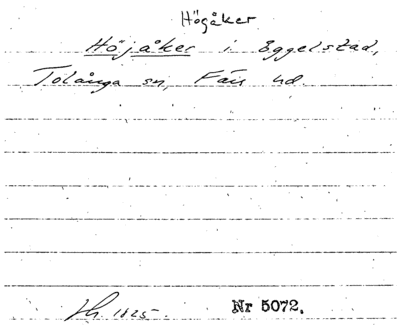 Högåker
Höjåker i Eggelstad,
Tolånga sn, Färs hd.
1825. Nr 5072.